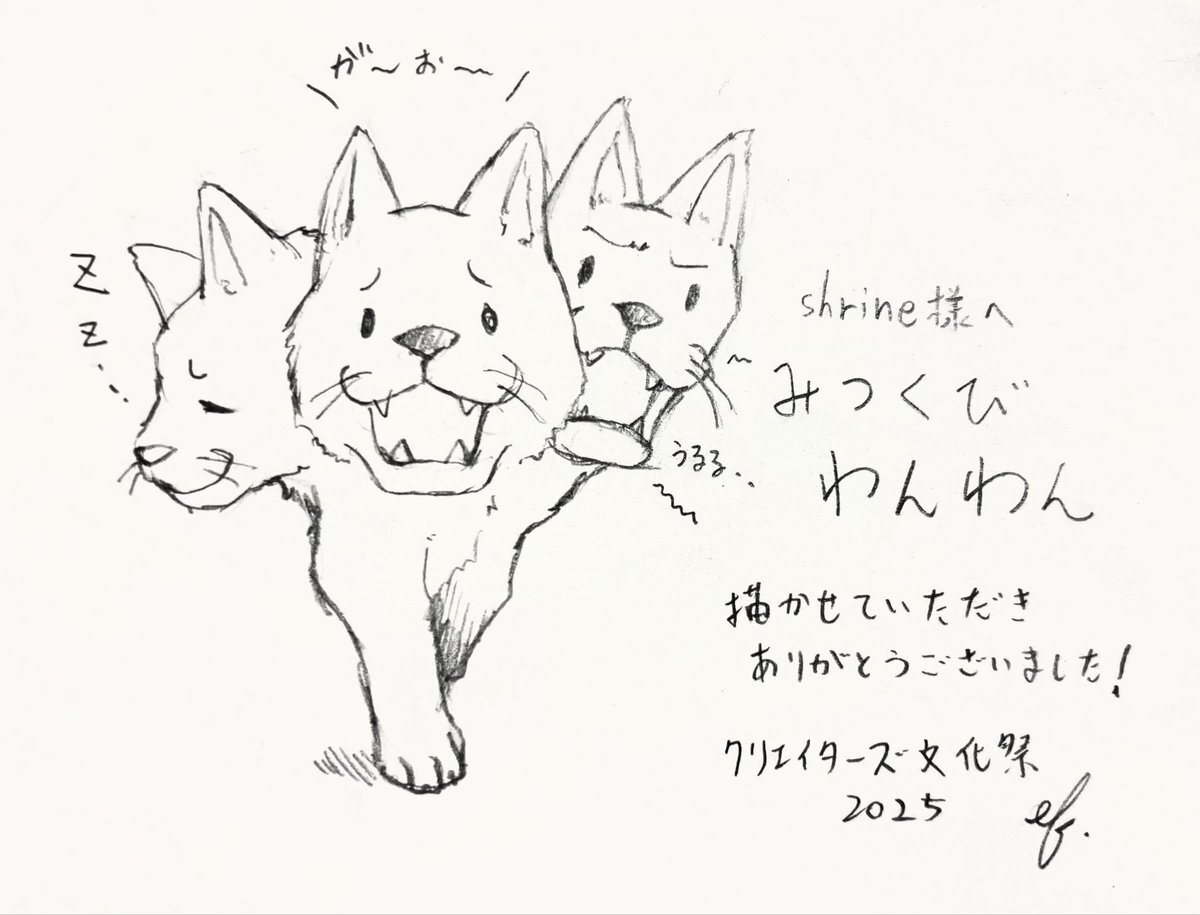 が〜お〜
Z
z
shrine様へ
みつくび
わんわん
うるる..
描かせていただき
ありがとうございました！
クリエイターズ文化祭
2025